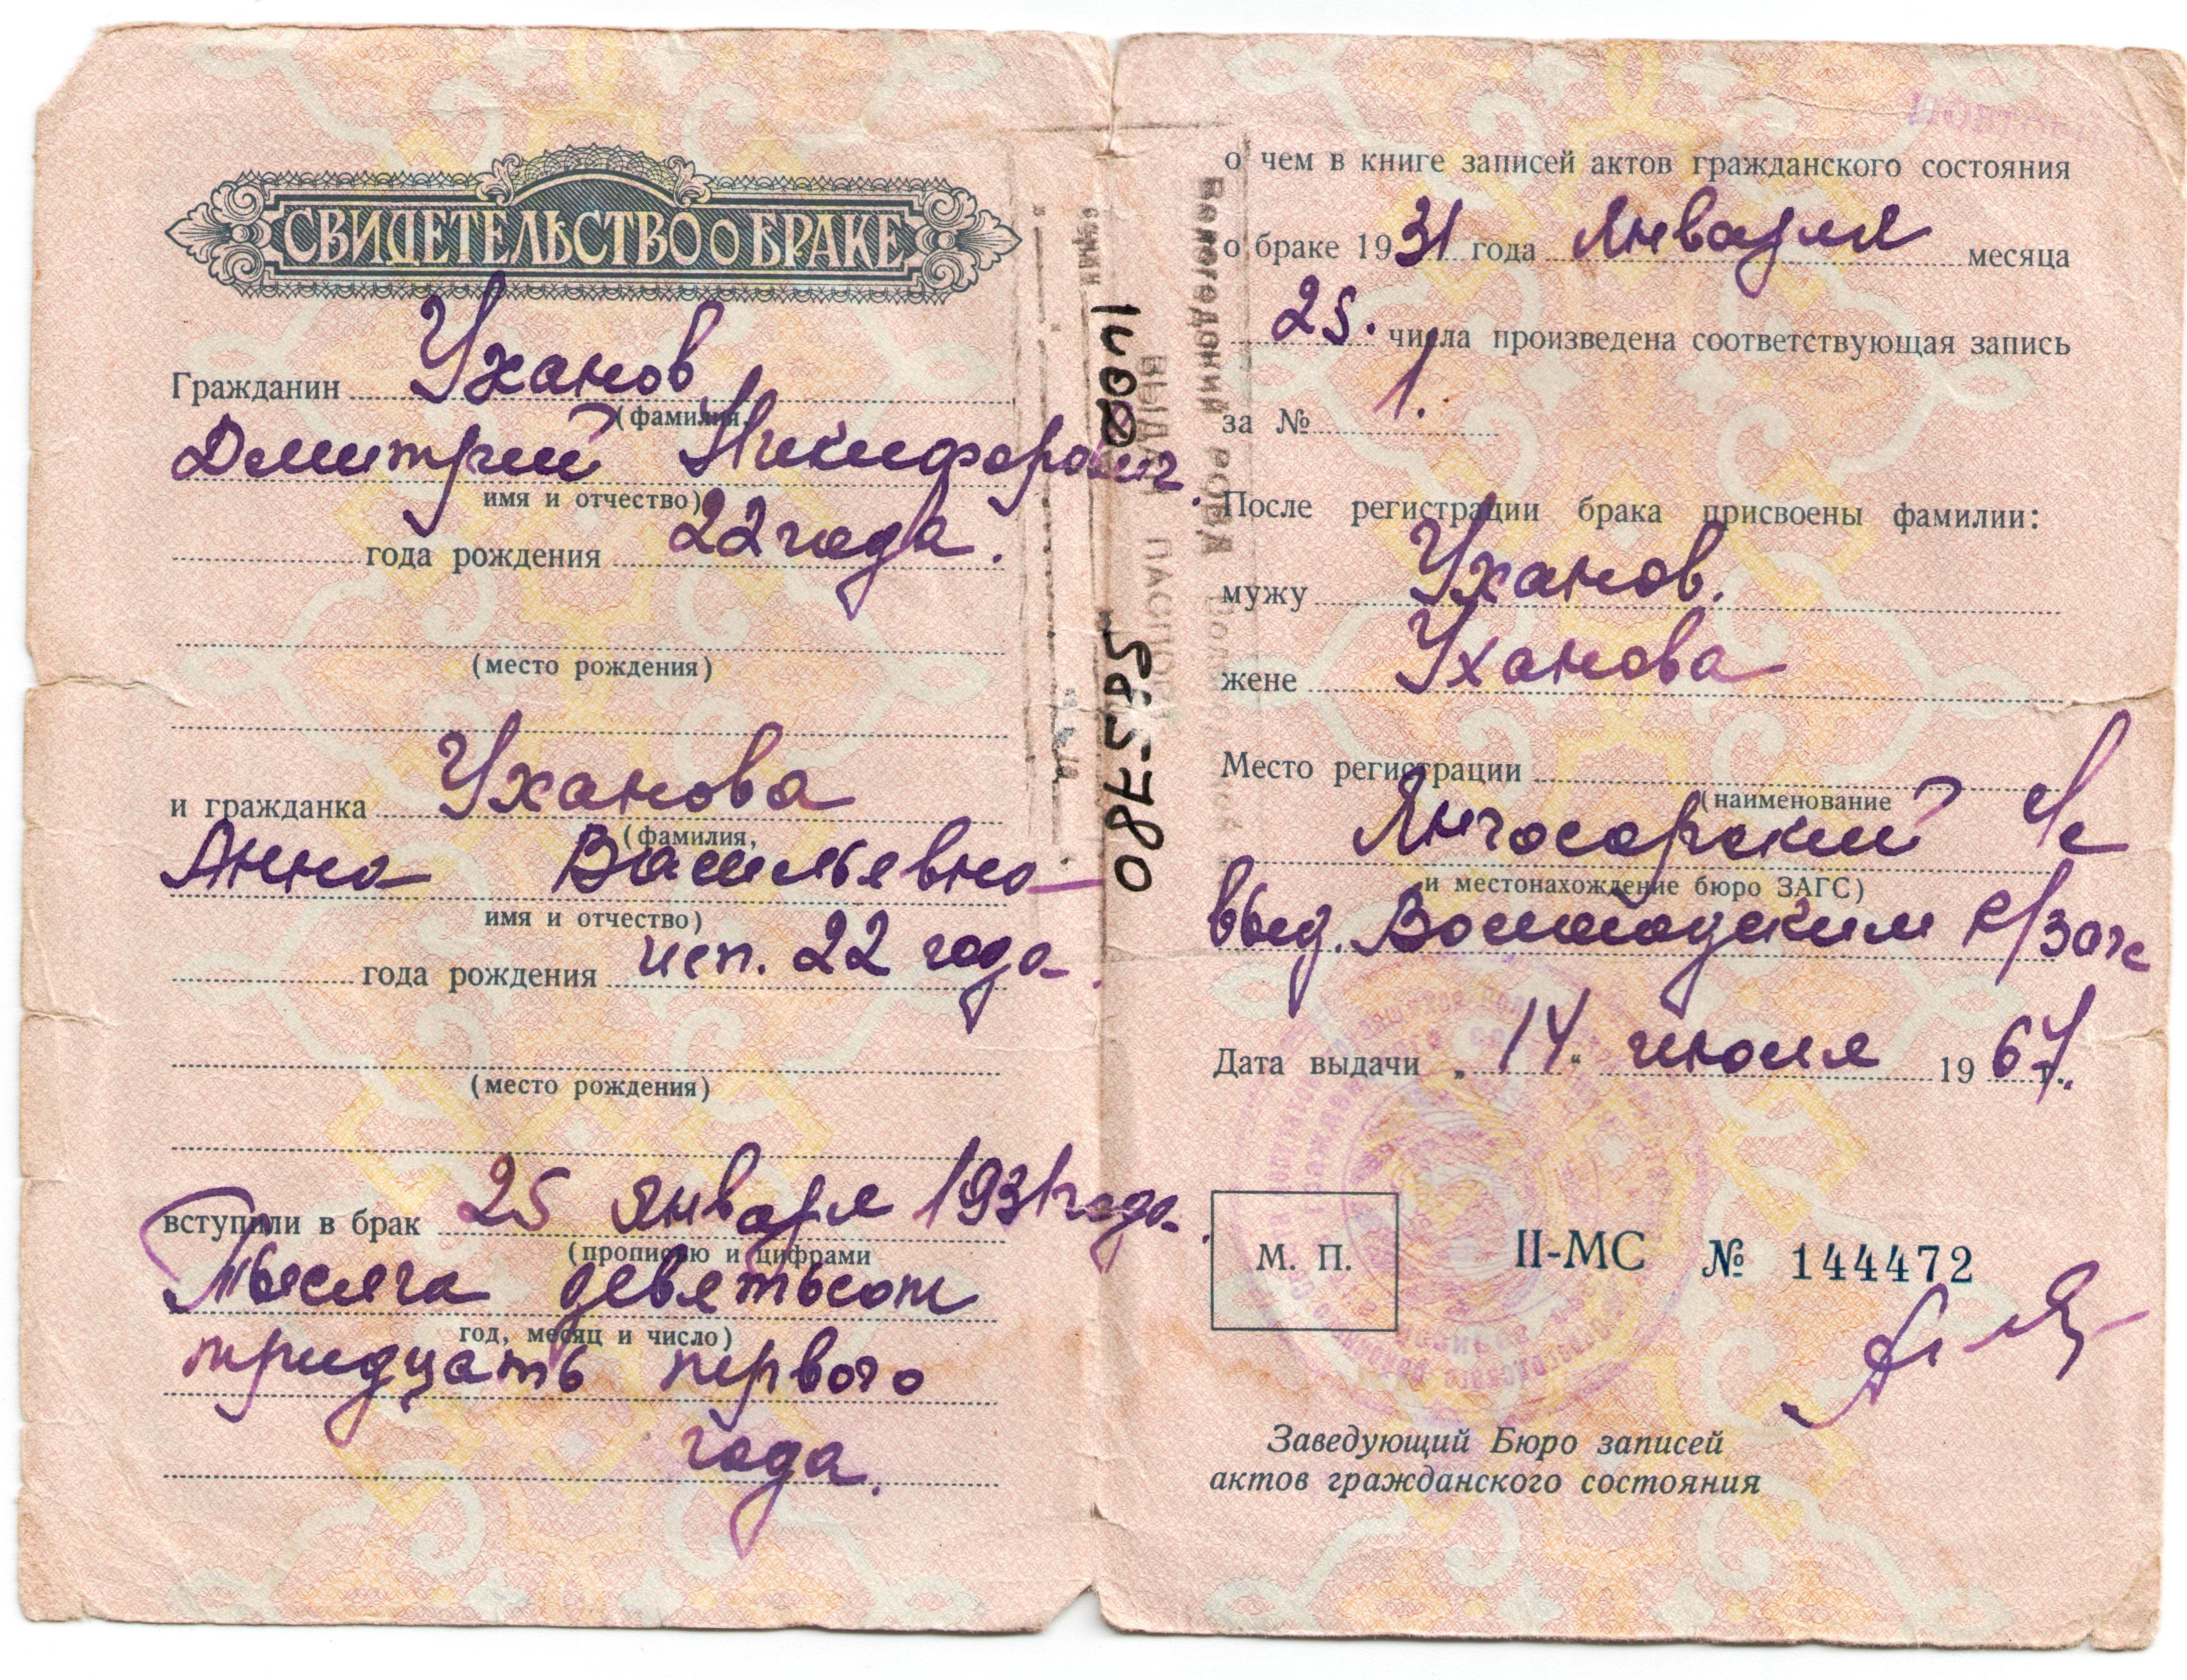 СВИДЕТЕЛЬСТВО о БРАКЕ
Гражданин Уханов
(фамилия,
Дмитрий Никифорович.
имя и отчество)
года рождения 22 года.
(место рождения)
и гражданка Уханова
(фамилия,
Анна Васильевна
имя и отчество)
года рождения исп. 22 года.
(место рождения)
вступили в брак 25 января 1931 года.
(прописью и цифрами
Тысяча девятьсот
год, месяц и число)
тридцать первого
года.
ВЫДАН ПАСПОРТ
Вологодский РОВД
585780
о чем в книге записей актов гражданского состояния
о браке 1931 года Января месяца
25. числа произведена соответствующая запись
за № 1.
После регистрации брака присвоены фамилии:
мужу Уханов.
жене Уханова
Место регистрации
(наименование
Янгосорский с/с
и местонахождение бюро ЗАГС)
выд. Вологодским р/загс
Дата выдачи „14“ июля 1967.
М. П.
II-МС № 144472
Заведующий Бюро записей
актов гражданского состояния